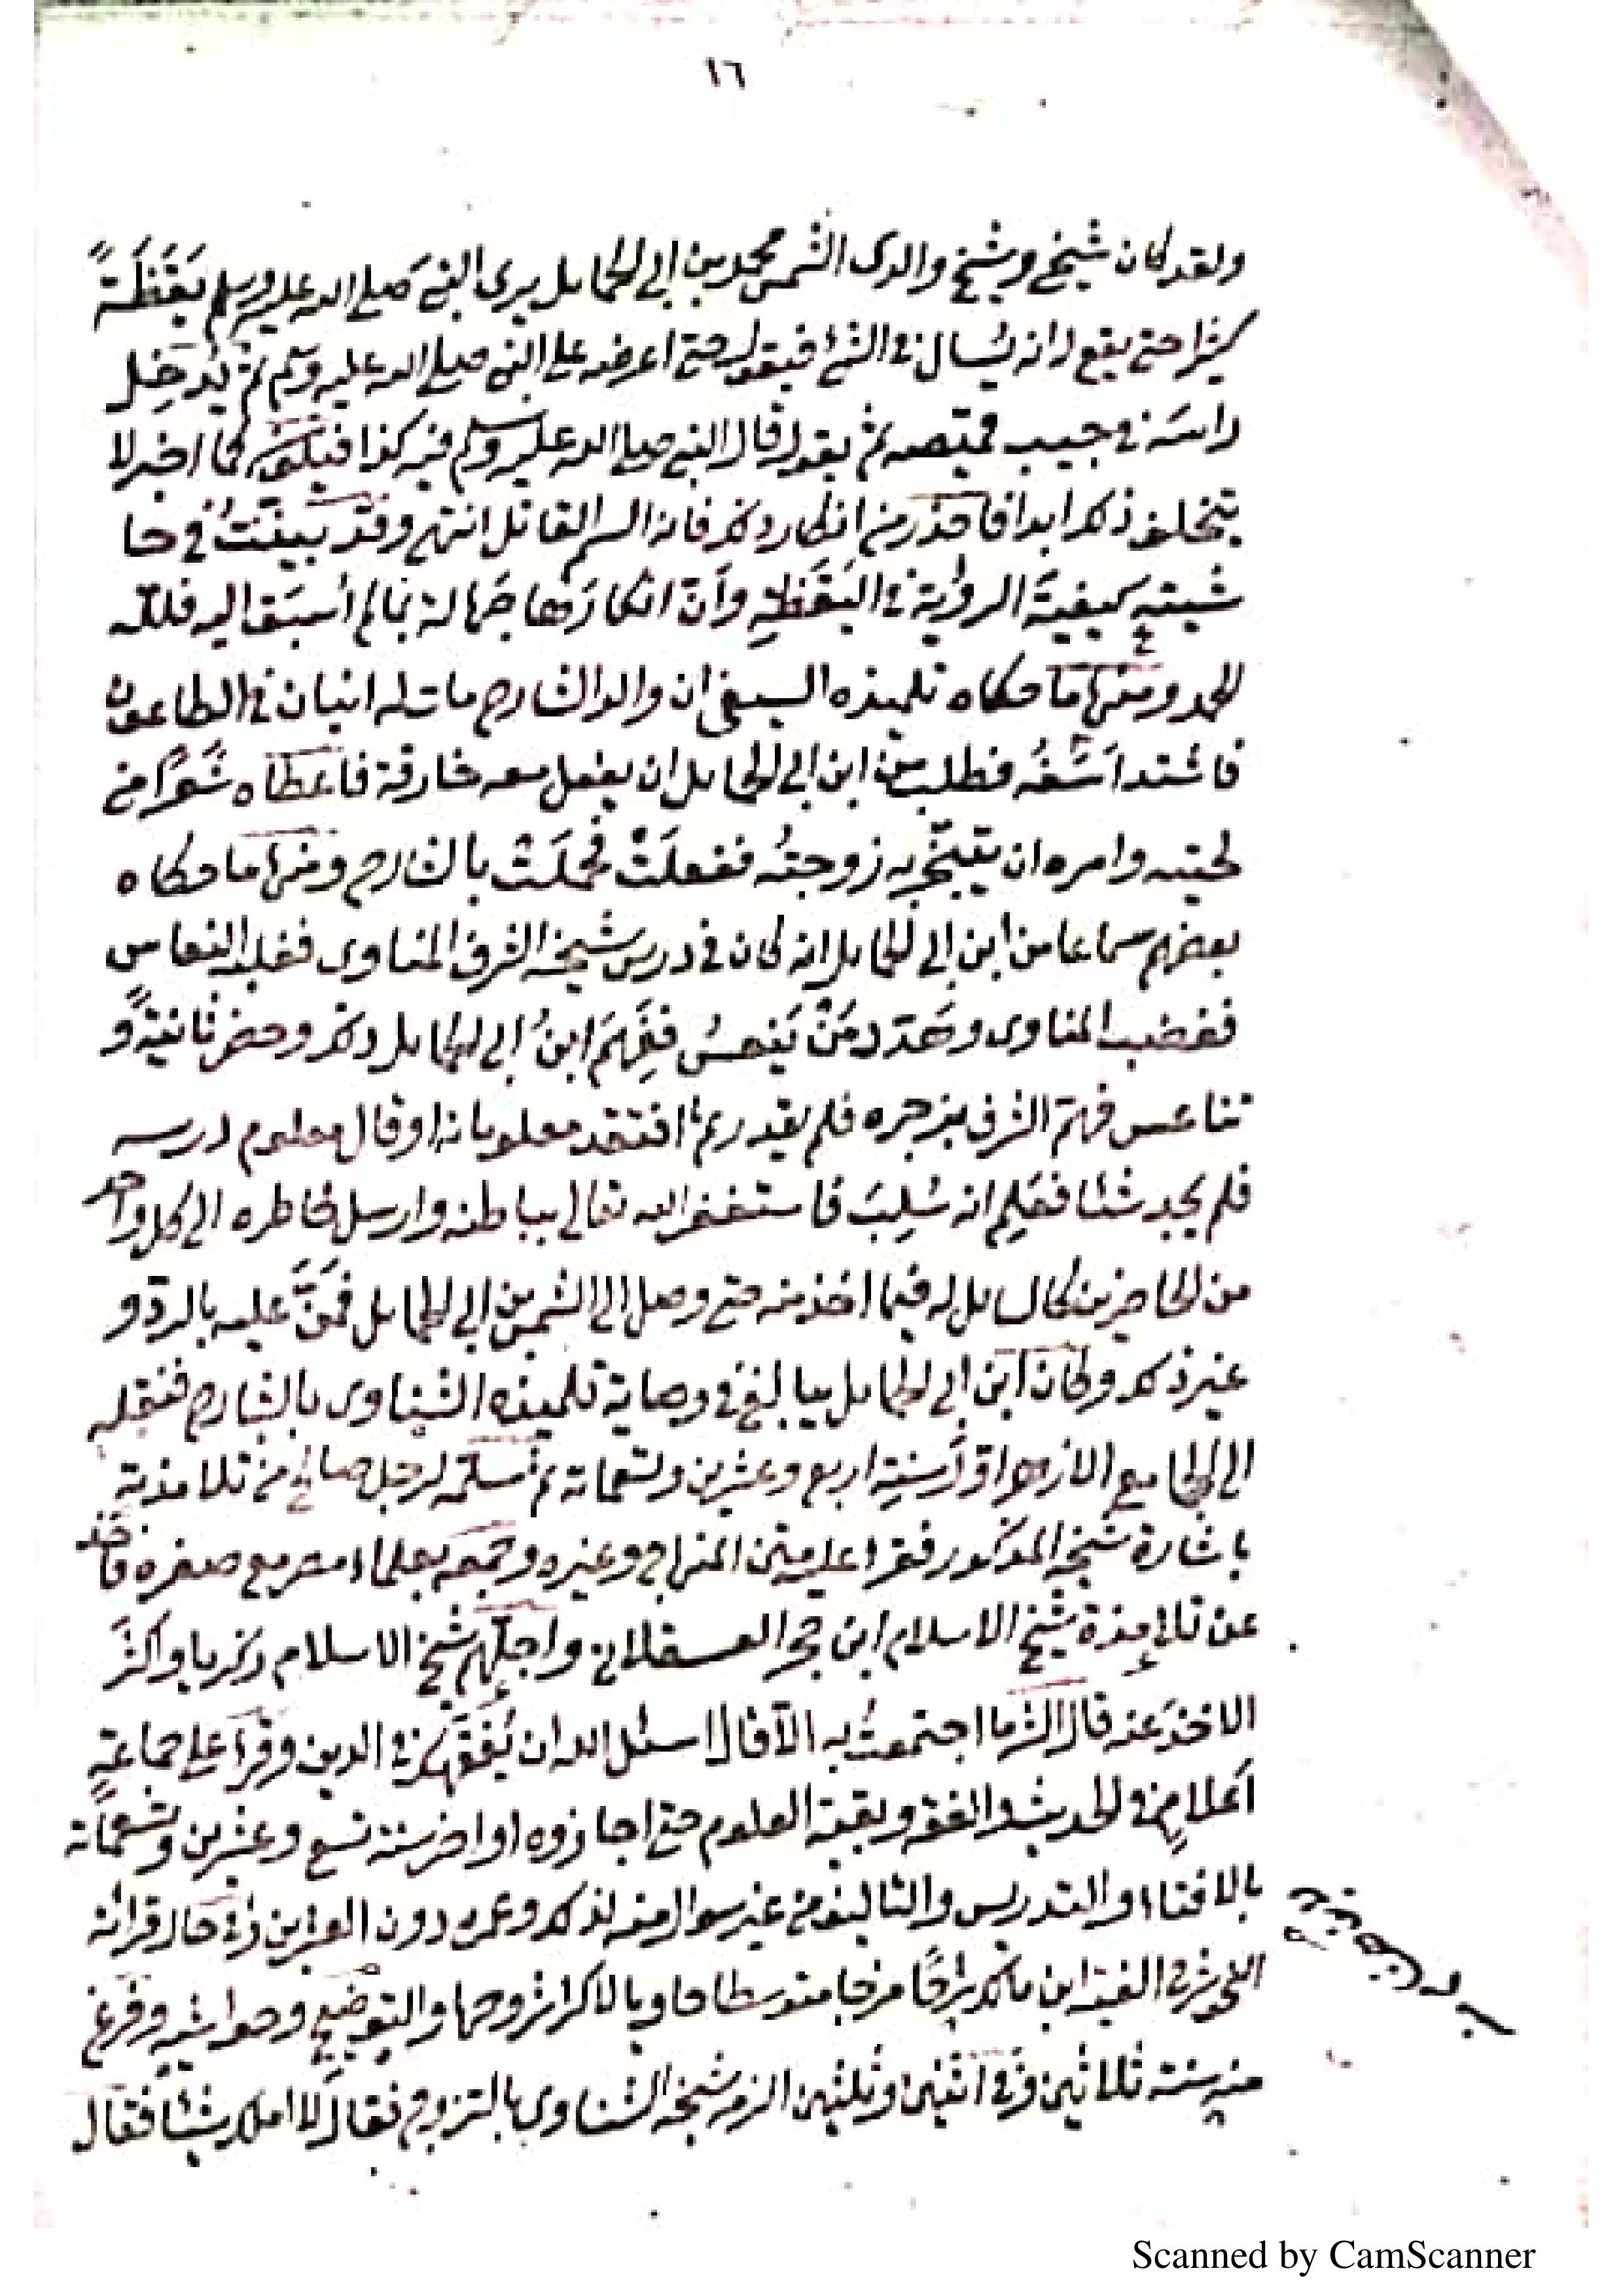 ١٦
ولقد كان شيخي وشيخ والدى الشمس محمد بن ابى الحمايل يرى النبى صلى الله عليه وسلم يَقَظَةً
كثيرا حتى يقع له انه يُسال فى الشئ فيقول حتى اعرضه على النبى صلى الله عليه وسلم ثم يُدخِل
راسَه فى جيب قميصه ثم يقول قال النبى صلى الله عليه وسلم فيه كذا فيكون كما اخبر لا
يتخلف ذلك ابدا فاحذر من انكار ذلك فانه السم القاتل انتهى وقد بَيَّنْتُ فى حا
شيته كيفيَّةَ الرؤية فى اليَقَظةِ وأنّ انكارَها جَهالة بمالم اُسبَق اليه فلله
الحمد ومنها ما حكاه تلميذه السيفى ان والد الشارح مات له ابنان فى الطاعون
فاشتد اَسَفُه فطلب من ابن ابى الحمايل ان يفعل معه خارقة فاعطاه شَعرًا من
لحيته وامره ان يتبخر به زوجتُه ففعلَتْ فحملَتْ بالشارح ومنها ما حكاه
بعضهم سماعا من ابن ابى الحمايل انه كان فى درس شيخه الشرف المناوى فغلبه النعاس
فغضب المناوى وهَدّد مَنْ يَنعسُ ففَهِمَ ابنُ ابى الحمايل ذلك وحضر ثانيةً و
تناعس فهمّ الشرف بزجره فلم يقدر ثم افتقد معلوماته او قال معلوم درسه
فلم يجد شئا فعَلِم انه سُلِبَ فاستغفر الله تعالى بباطنه وارسل خاطره الى كل واحد
من الحاضرين كالسائل له فيما اخذ منه حتى وصل الى الشمس بن ابى الحمايل فمَنَّ عليه بالرد و
غير ذلك وكان ابن ابى الحمايل يبالغ فى وصاية تلميذه الشناوى بالشارح فنقله
الى الجامع الازهر اوّلَ سنة اربع وعشرين وتسعمائة ثم سلّمه لرجل صالح من تلامذته
باشارة شيخه المذكور فقرا عليه متن المنهاج وغيره وجمعه بعلماء مصر مع صغره فاخذ
عن تلامِذة شيخ الاسلام ابن حجر العسقلانى واجلّهم شيخ الاسلام زكريا واكثَرَ
الاخذَ عنه قال الشرما اجتمعتُ به الا قال اسئل الله ان يُفَقِّهَك فى الدين وقرأ على جماعةٍ
اَعلامٍ فى الحديث والفقه وبقية العلوم حتى اجازوه اواخر سنة تسع وعشرين وتسعمائة
بالافتاء والتدريس والتاليف من غير سؤال منه لذلك وعمره دون العشرين وفى حال قرائته
النحو شرح الفية ابن مالك شرحًا مزجا متوسطا حاويا لاكثر شروحها والتوضيح وحواشيه وفرغ
منه سنة ثلاثين وفى اثنين وثلثين الزمه شيخه الشناوى بالتزوج فقال لا املك شيئا فقال